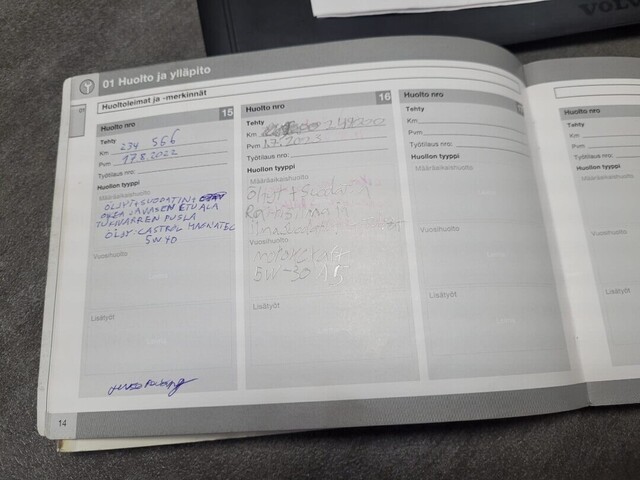 VOLVO
01 Huolto ja ylläpito
Huoltoleimat ja -merkinnät
Huolto nro 15
Tehty
Km 234 556
Pvm 17.8.2022
Työtilaus nro:
Huollon tyyppi
Määräaikaishuolto
ÖLJYT+SUODATIN+
OIKEA JA VASEN ETUALA
TUKIVARREN PUSLA
ÖLJY: CASTROL MAGNATEC
5W40
Vuosihuolto
Lisätyöt
Huolto nro 16
Tehty
Km
Pvm
Työtilaus nro:
Huollon tyyppi
Määräaikaishuolto
Öljyt + Suodatin
Raitisilma ja
Vuosihuolto
motorcraft
5W-30
Lisätyöt
Huolto nro
Tehty
Km
Pvm
Työtilaus nro:
Huollon tyyppi
Määräaikaishuolto
Vuosihuolto
Lisätyöt
Huolto nro
Tehty
Km
Pvm
14